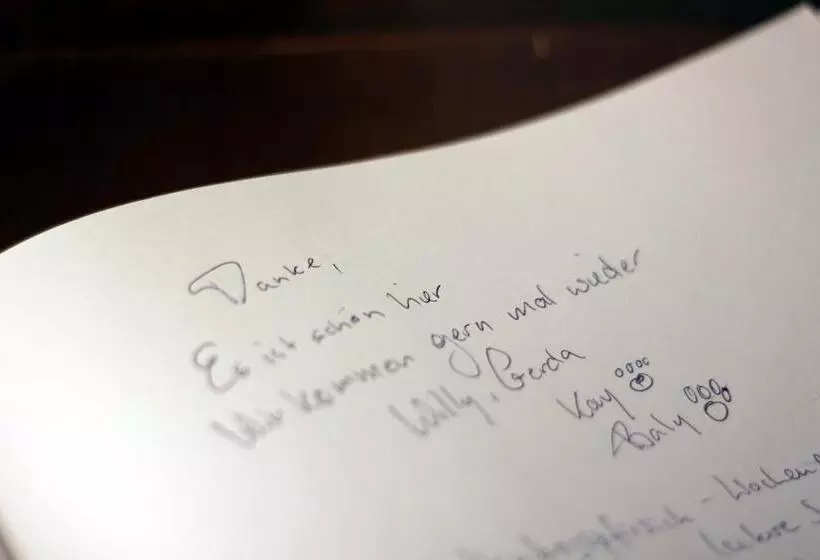 Danke,
Es ist schön hier
Wir kommen gern mal wieder
Willy, Gerda
Kay
Baly
- Wochen